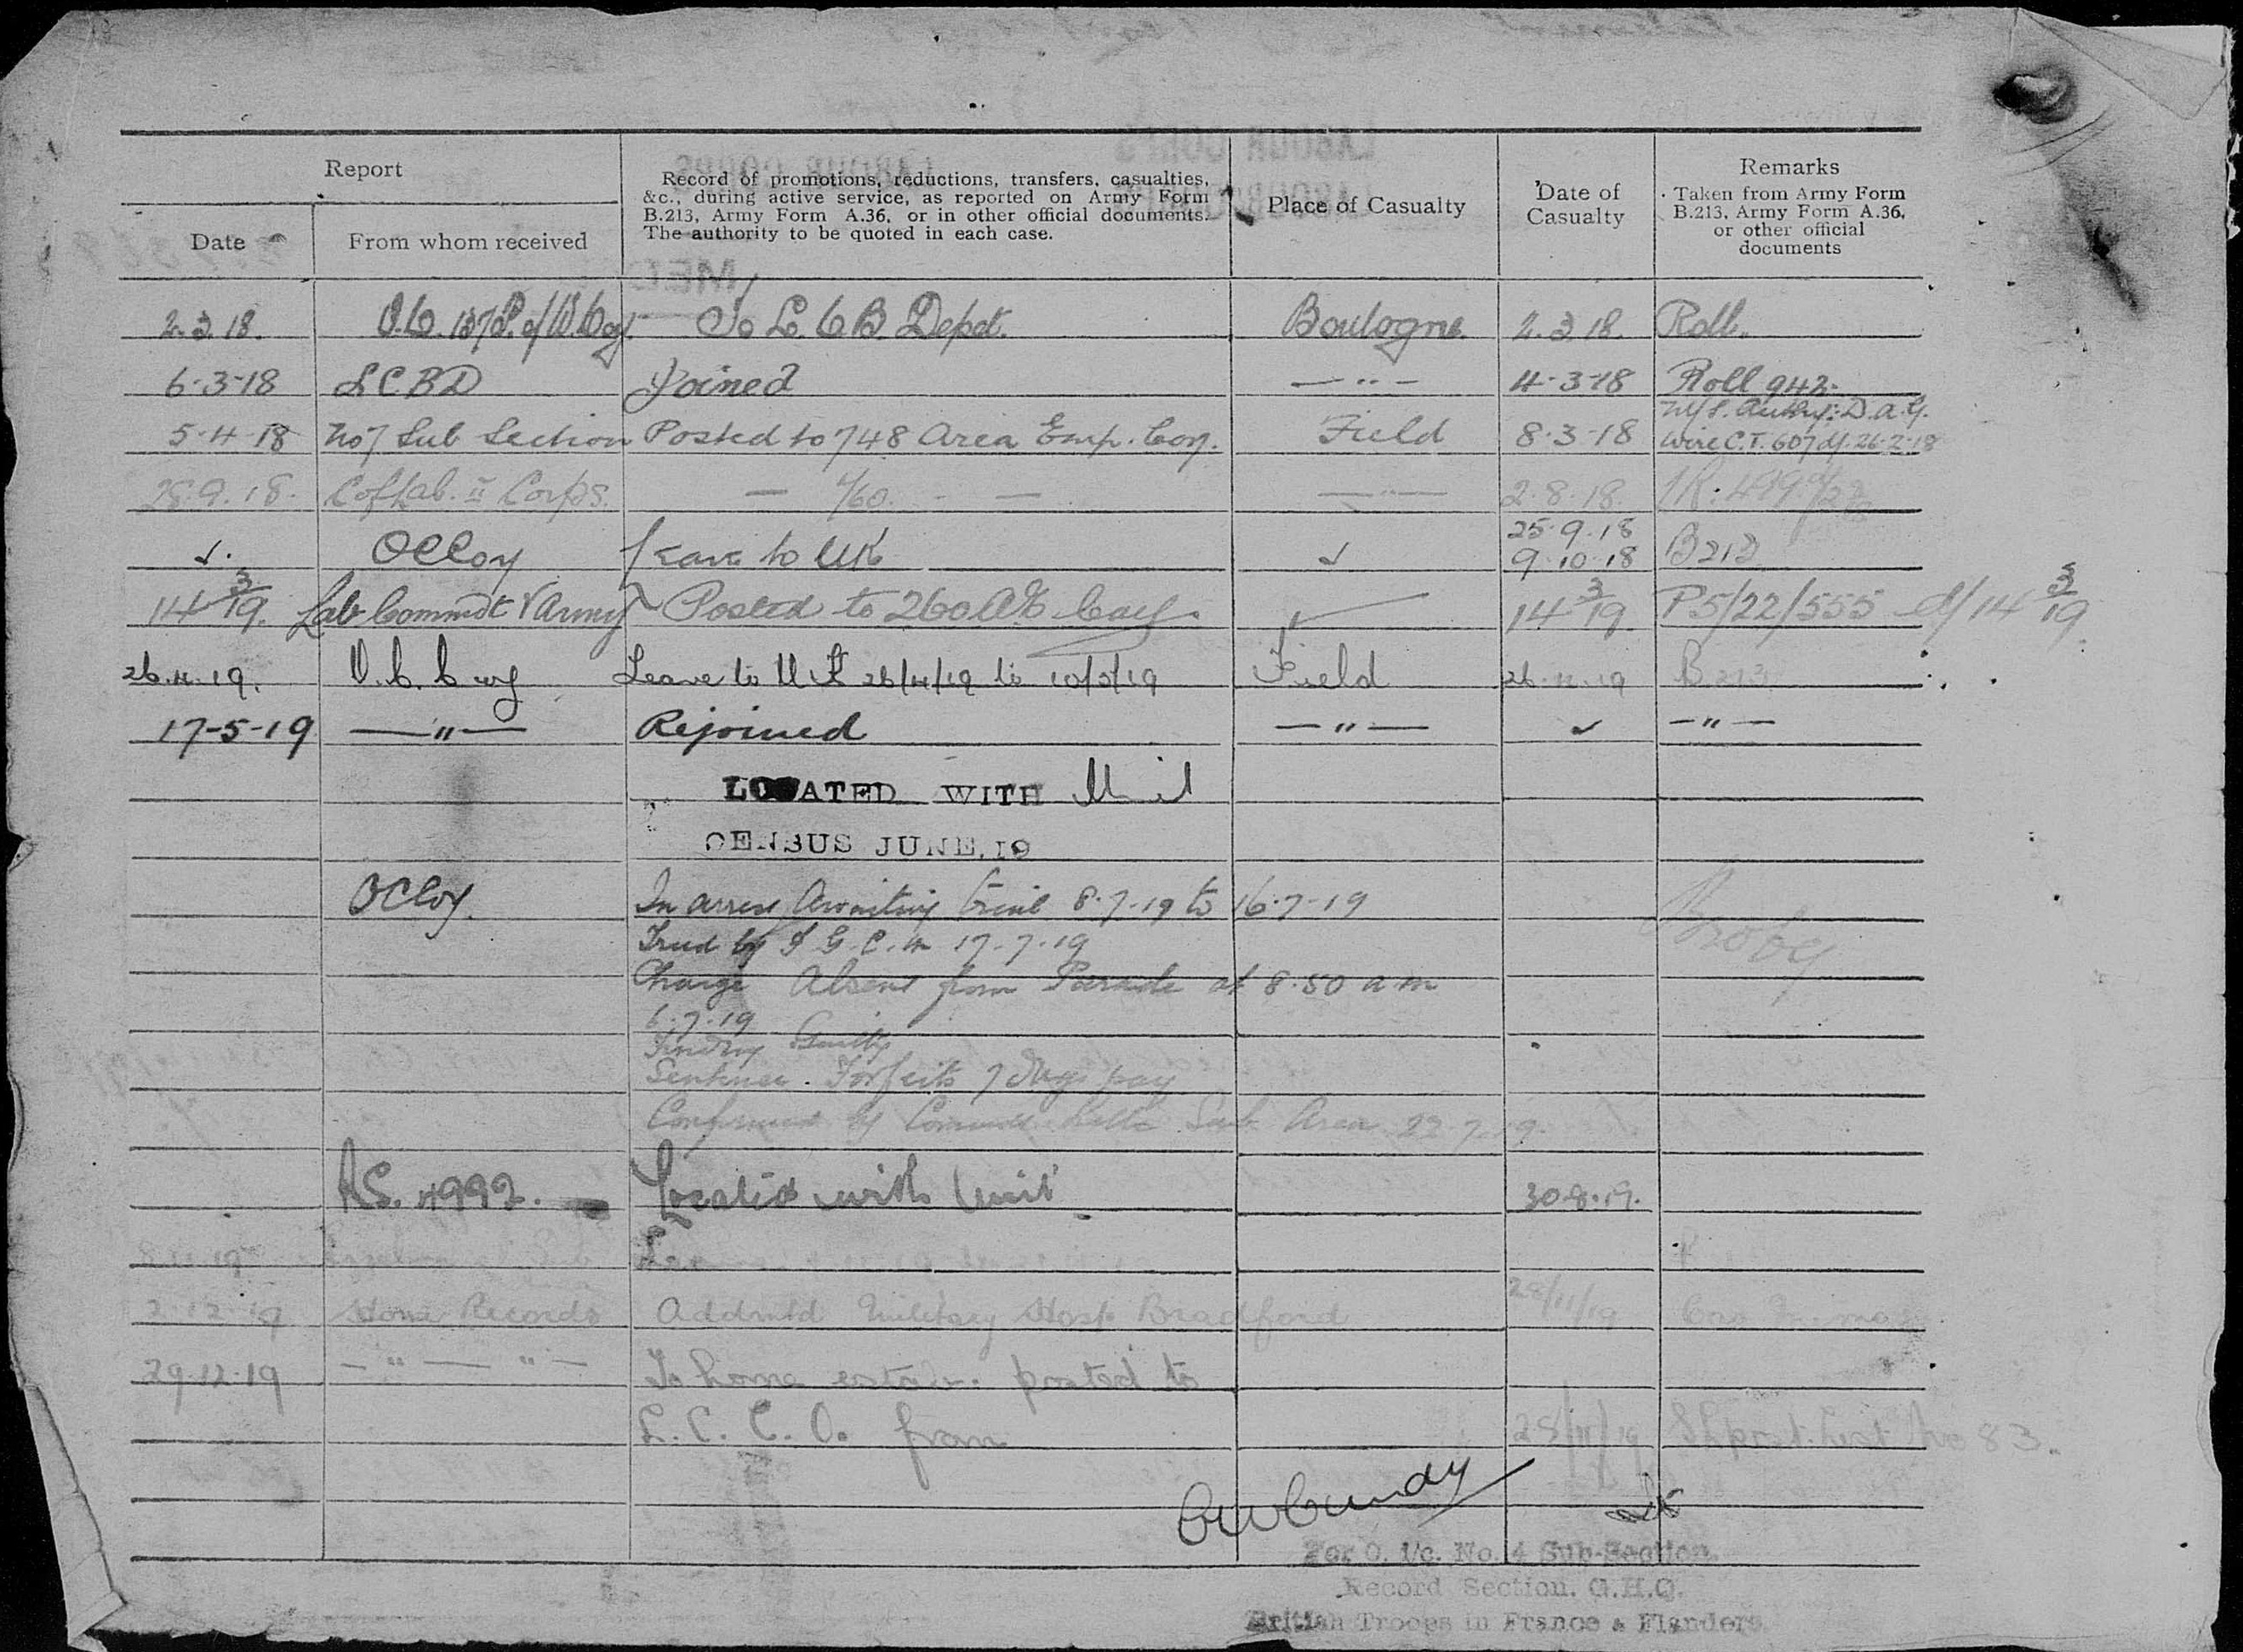 Report
Record of promotions, reductions, transfers, casualties,
&c., during active service, as reported on Army Form
B.213, Army Form A.36, or in other official documents.
The authority to be quoted in each case.
Place of Casualty
Date of
Casualty
Remarks
Taken from Army Form
B.213, Army Form A.36,
or other official
documents
Date
From whom received
2.3.18. O.C. 137 P. of W. Coy. To L.C.B. Depot. Boulogne. 2.3.18. Roll.
6-3-18 LCBD Joined — " — 4-3-18 Roll 942.
5-4-18 No 7 Sub Section Posted to 748 Area Emp. Coy. Field 8-3-18 Authy: D.A.G.
wire C.T. 607 d/. 26-2-18
28.9.18. C of Lab. II Corps. — — — " — 2.8.18.
✓. OCCoy Leave to UK ✓ 25.9.18
9.10.18 B213
14 3/19. Lab Commdt V Army Posted to 260 Coy 14 3/19 P5/22/555 d/14 3/19
26.4.19. O.C. Coy Leave to UK 26/4/19 to 10/5/19 Field 26.4.19 B213
17-5-19 — " — Rejoined — " — ✓ — " —
LOCATED WITH Unit
CENSUS JUNE.19
OCCoy. In arrest Awaiting trial 8.7.19 to 16.7.19
Tried by F G.C.M 17.7.19
Charge Absent from Parade at 8.50 a.m
6.7.19
Finding Guilty
Sentence. Forfeits 7 days pay
Confirmed by Sub Area 22.7.19.
4992. Located with Unit 30.8.19.
2.12.19 Home Records Addmtd Military Hosp Bradford 28/11/19
29.12.19 — " — " — To home estab. posted to
L.C.C.O. from 28/11/19 List No 83.
For O. i/c. No. 4 Sub-Section.
Record Section. G.H.Q.
British Troops in France & Flanders